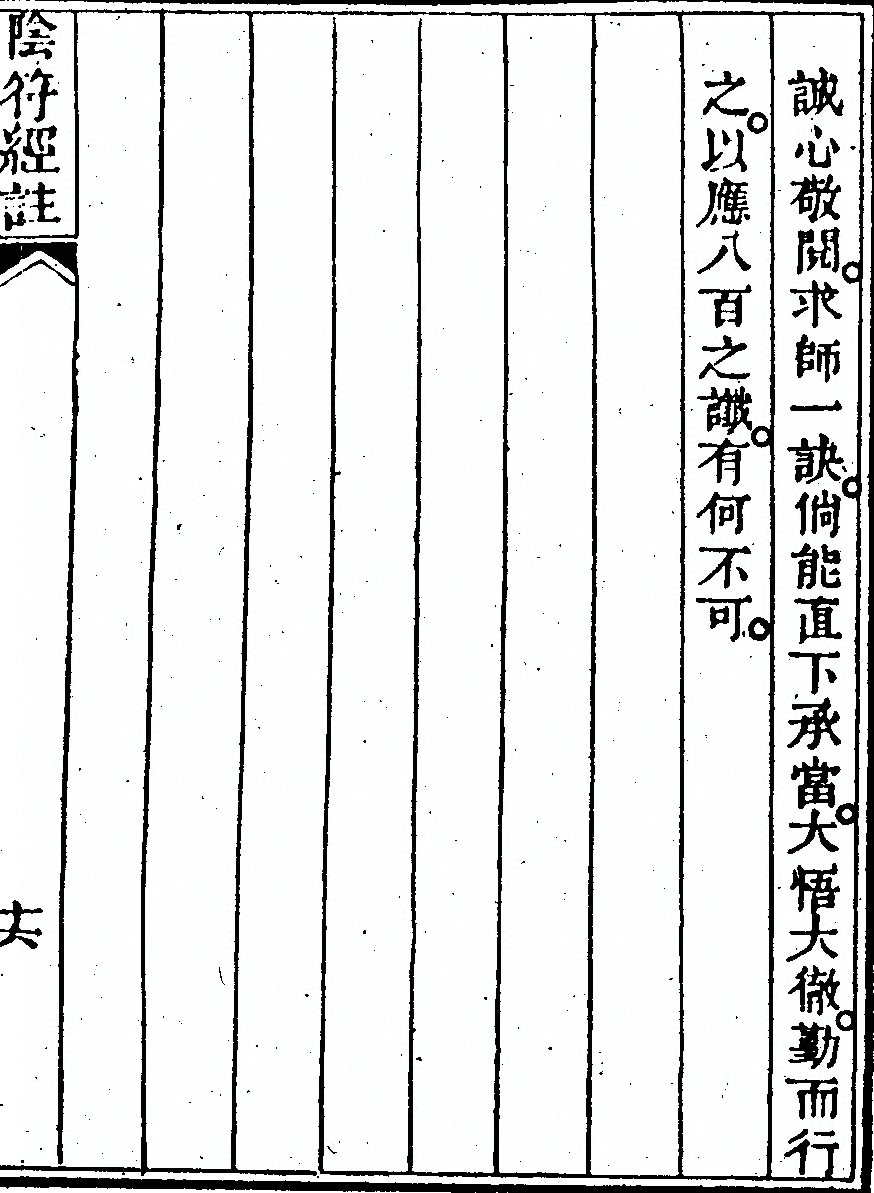 誠心敬閱。求師一訣。倘能直下承當。大悟大徹。勤而行
之。以應八百之讖。有何不可。
陰符經註
十六